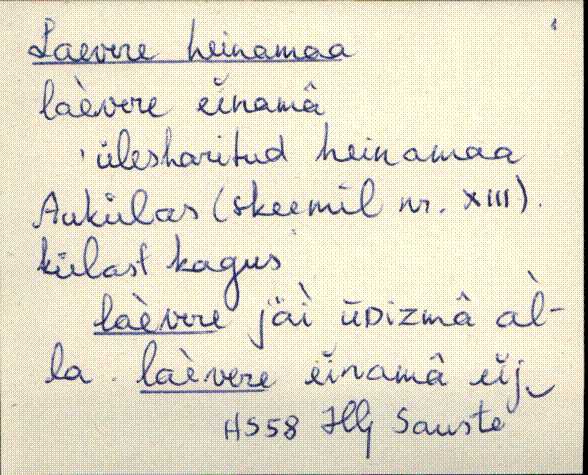 Laevere heinamaa
làevere eĭnamâ
'ülesharitud heinamaa
Aukülas (skeemil nr. XIII).
külast kagus
làevere jäì ūDizmâ àl-
la. làevere eĭnamâ
HS58 Sauste